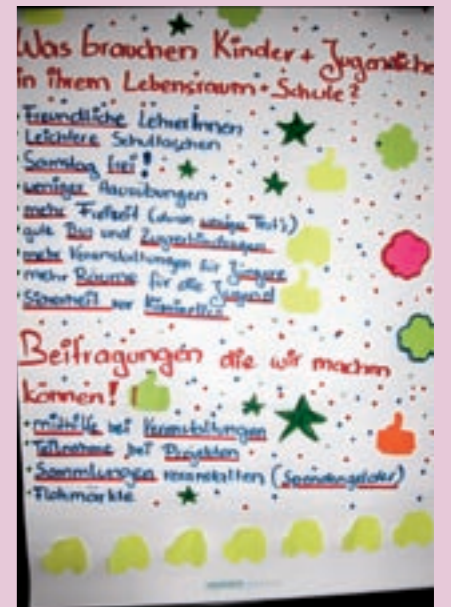 Was brauchen Kinder + Jugendliche
in ihrem Lebensraum - Schule?
• Freundliche LehrerInnen
• Leichtere Schultaschen
• Samstag frei!
• weniger Hausübungen
• mehr Freizeit (durch wenige Test's)
• gute Bus und Zugverbindungen
• mehr Veranstaltungen für Jüngere
• mehr Räume für die Jugend
• Sicherheit vor Kriminellen
Beitragungen die wir machen
können!
• mithilfe bei Veranstaltungen
• Teilnahme bei Projekten
• Sammlungen veranstalten (Spendengelder)
• Flohmärkte